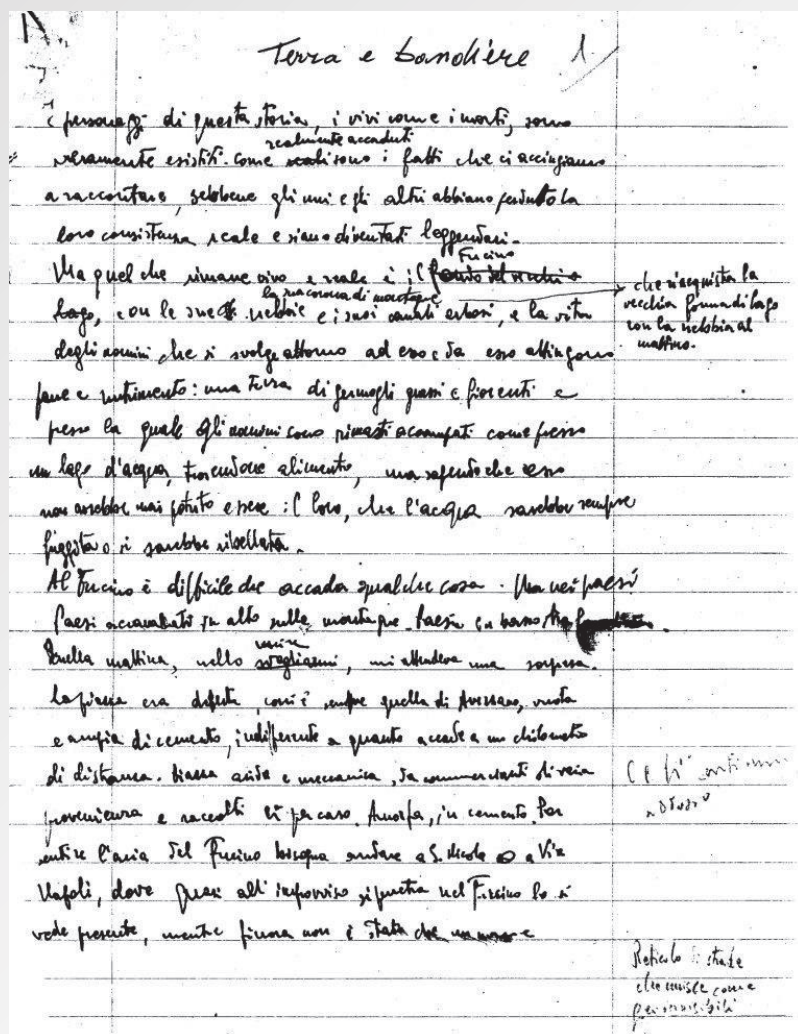 Terra e bandiere 1
I personaggi di questa storia, i vivi come i morti, sono
realmente accaduti
veramente esistiti. Come reali sono i fatti che ci accingiamo
a raccontare, sebbene gli uni e gli altri abbiano perduto la
loro consistenza reale e siano diventati leggendari.
Fucino
Ma quel che rimane vivo e reale è il fondo del vecchio
la raccorcia di montagne
lago, con le sue nebbie e i suoi canali erbosi, e la vita
che riacquista la
vecchia forma di lago
con la nebbia al
mattino.
degli uomini che si svolge attorno ad esso e da esso attingono
pane e nutrimento: una terra di germogli grassi e fiorenti e
presso la quale gli uomini sono rimasti accampati come presso
un lago d'acqua, traendone alimento, ma sapendo che esso
non avrebbe mai potuto essere il loro, che l'acqua sarebbe sempre
fuggita o si sarebbe ribellata.
Al Fucino è difficile che accada qualche cosa. Ma nei paesi
Paesi accavallati in alto sulle montagne. Paesi in basso
Quella mattina, nello svegliarmi, mi attendeva una sorpresa.
La piazza era deserta, com'è sempre quella di Avezzano, vuota
e ampia di cemento, indifferente a quanto accade a un chilometro
di distanza. Piazza arida e meccanica, da commercianti di varia
provenienza e raccolti lì per caso. Amorfa, in cemento. Per
sentire l'aria del Fucino bisogna andare a S. Nicola o a Via
Napoli, dove quasi all'improvviso si penetra nel Fucino lo si
vede presente, mentre finora non è stata che
Reticolo di strade
che unisce come